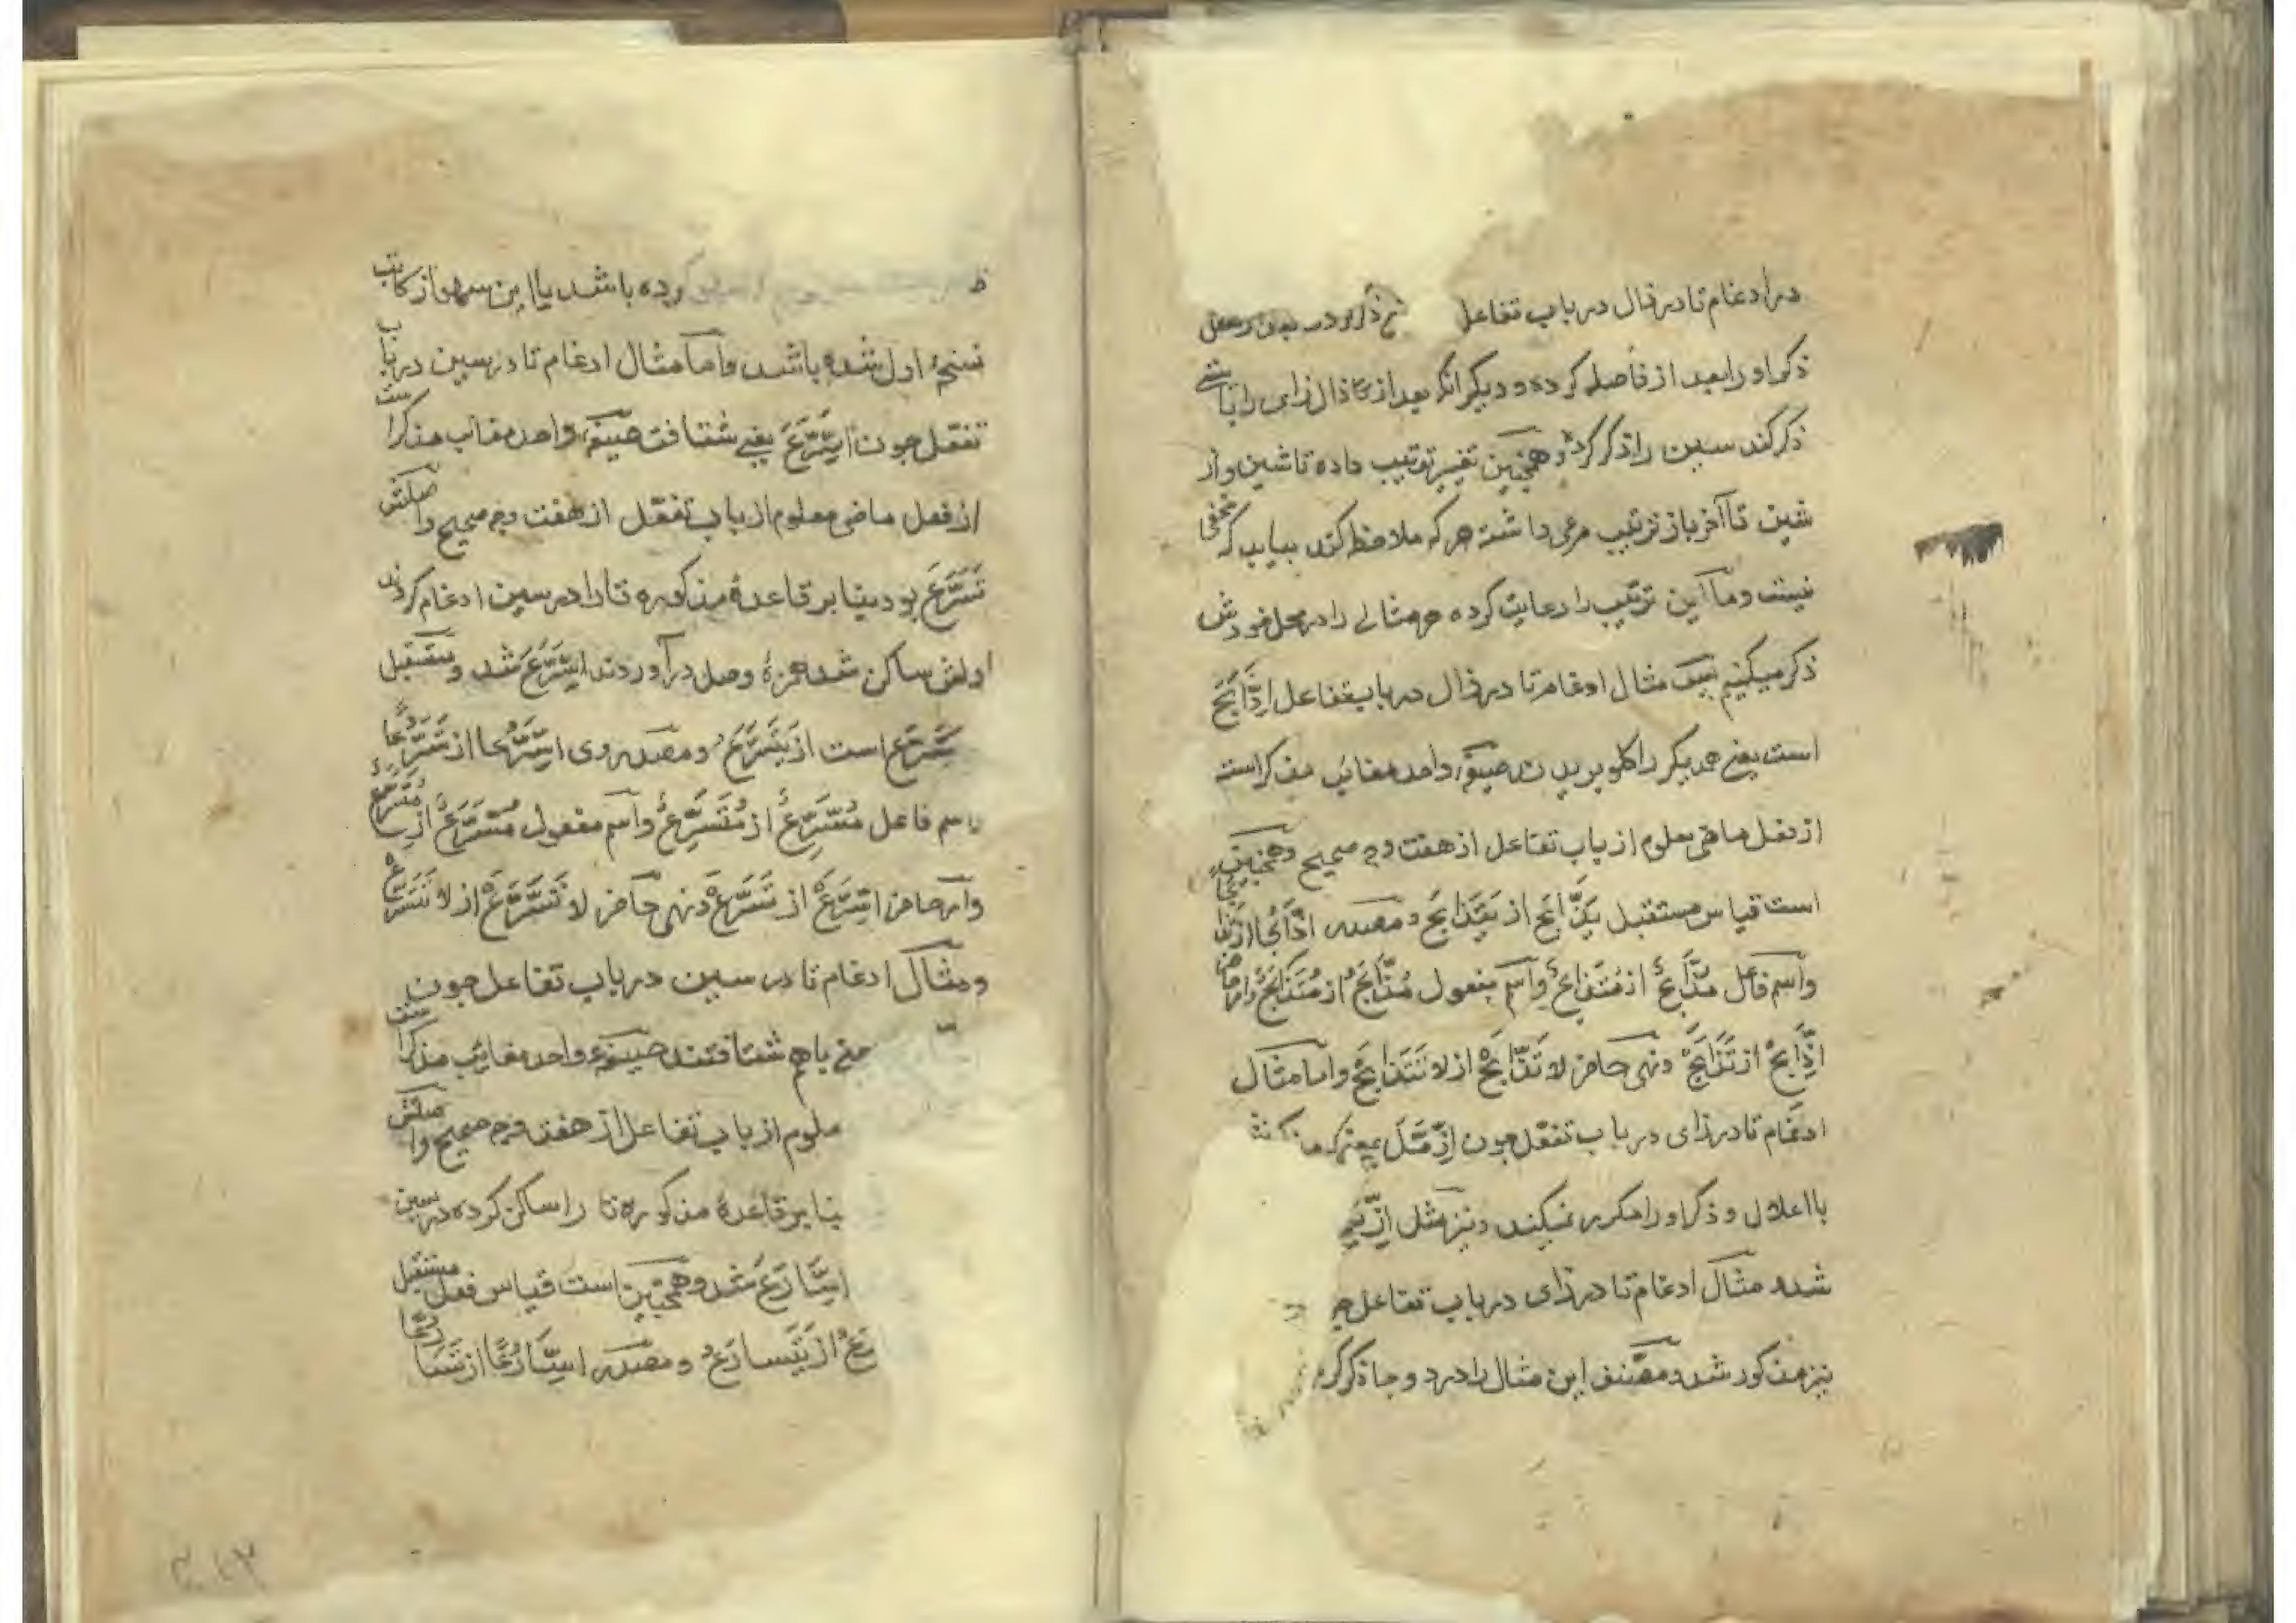 در ادغام تا در ذال در باب تفاعل
ذکر او را بعد از فاصله کرده و دیکر انکه بعد از ذال زای را بایستی
ذکر کند سین را ذکر کرد و همچنین تغییر ترتیب داده تا شین و از
شین تا آخر باز ترتیب مرعی داشته هر که ملاحظه کند بیابد که مخفی
نیست و ما این ترتیب را رعایت کرده هر مثالی را در محل خودش
ذکر میکنیم پس مثال ادغام تا در ذال در باب تفاعل اِذَّابَحَ
است یعنی همدیکر را کلو بریدند صیغهٔ واحد مغایب مذکر است
از فعل ماضی معلوم از باب تفاعل از هفت وجه صحیح و همچنین
است قیاس مستقبل یَذَّابَحُ از یَتَذَابَحُ و مصدر اذَّابُحًا از تَذابُحًا
و اسم فاعل مُذَّابِحٌ از مُتَذابِحٌ و اسم مفعول مُذَّابَحٌ از مُتَذَابَحٌ و امر حاضر
اِذَّابَحْ از تَذَابَحْ و نهی حاضر لا تَذَّابَحْ از لا تَتَذَابَحْ و اما مثال
ادغام تا در زای در باب تفعّل چون اِزَّمَّلَ
با اعلال و ذکر او را مکرر نمیکند و نیز مثل
شد مثال ادغام تا در زای در باب تفاعل
نیز مذکور شد و مصنف این مثال را در دو جا ذکر کرد
کرده باشد یا این سهو از کاتب
نسخهٔ اول شده باشد و اما مثال ادغام تا در سین در باب
تفعّل چون اِسَّرَّعَ یعنی شتافت صیغهٔ واحد مغایب مذکر است
از فعل ماضی معلوم از باب تفعّل از هفت وجه صحیح و اصلش
تَسَرَّعَ بود بنا بر قاعدهٔ مذکوره تا را در سین ادغام کردند
اولش ساکن شد همزهٔ وصل درآوردند اِسَّرَّعَ شد و مستقبل
یَسَّرَّعُ است از یَتَسَرَّعُ و مصدر وی اسَّرُّعا از تَسَرُّعًا
و اسم فاعل مُسَّرِّعٌ از مُتَسَرِّعٌ و اسم مفعول مُسَّرَّعٌ از مُتَسَرَّعٌ
و امر حاضر اِسَّرَّعْ از تَسَرَّعْ و نهی حاضر لا تَسَّرَّعْ از لا تَتَسَرَّعْ
و مثال ادغام تا در سین در باب تفاعل چون
یعنی باهم شتافتند صیغهٔ واحد مغایب مذکر است
معلوم از باب تفاعل از هفت وجه صحیح و اصلش
بنا بر قاعدهٔ مذکوره تا را ساکن کرده در سین
اِسَّارَعَ شد و همچنین است قیاس فعل مستقبل
رَعُ از یَتَسارَعُ و مصدر اسَّارُعًا از تَسَارُعًا